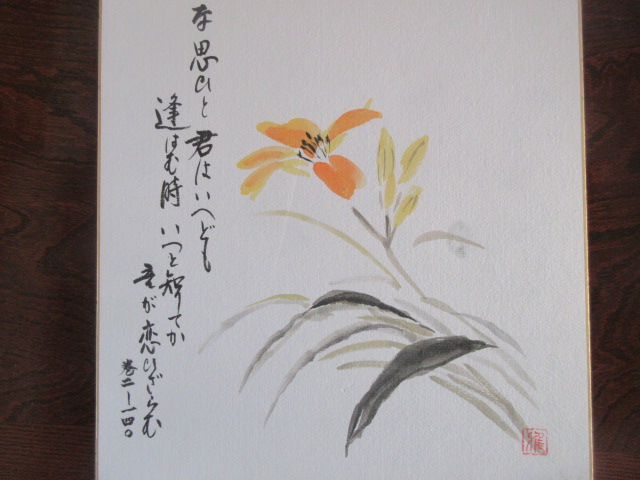 な思ひと君はいへども
逢はむ時いつと知りてか
吾が恋ひざらむ
巻二ー一四〇
雅